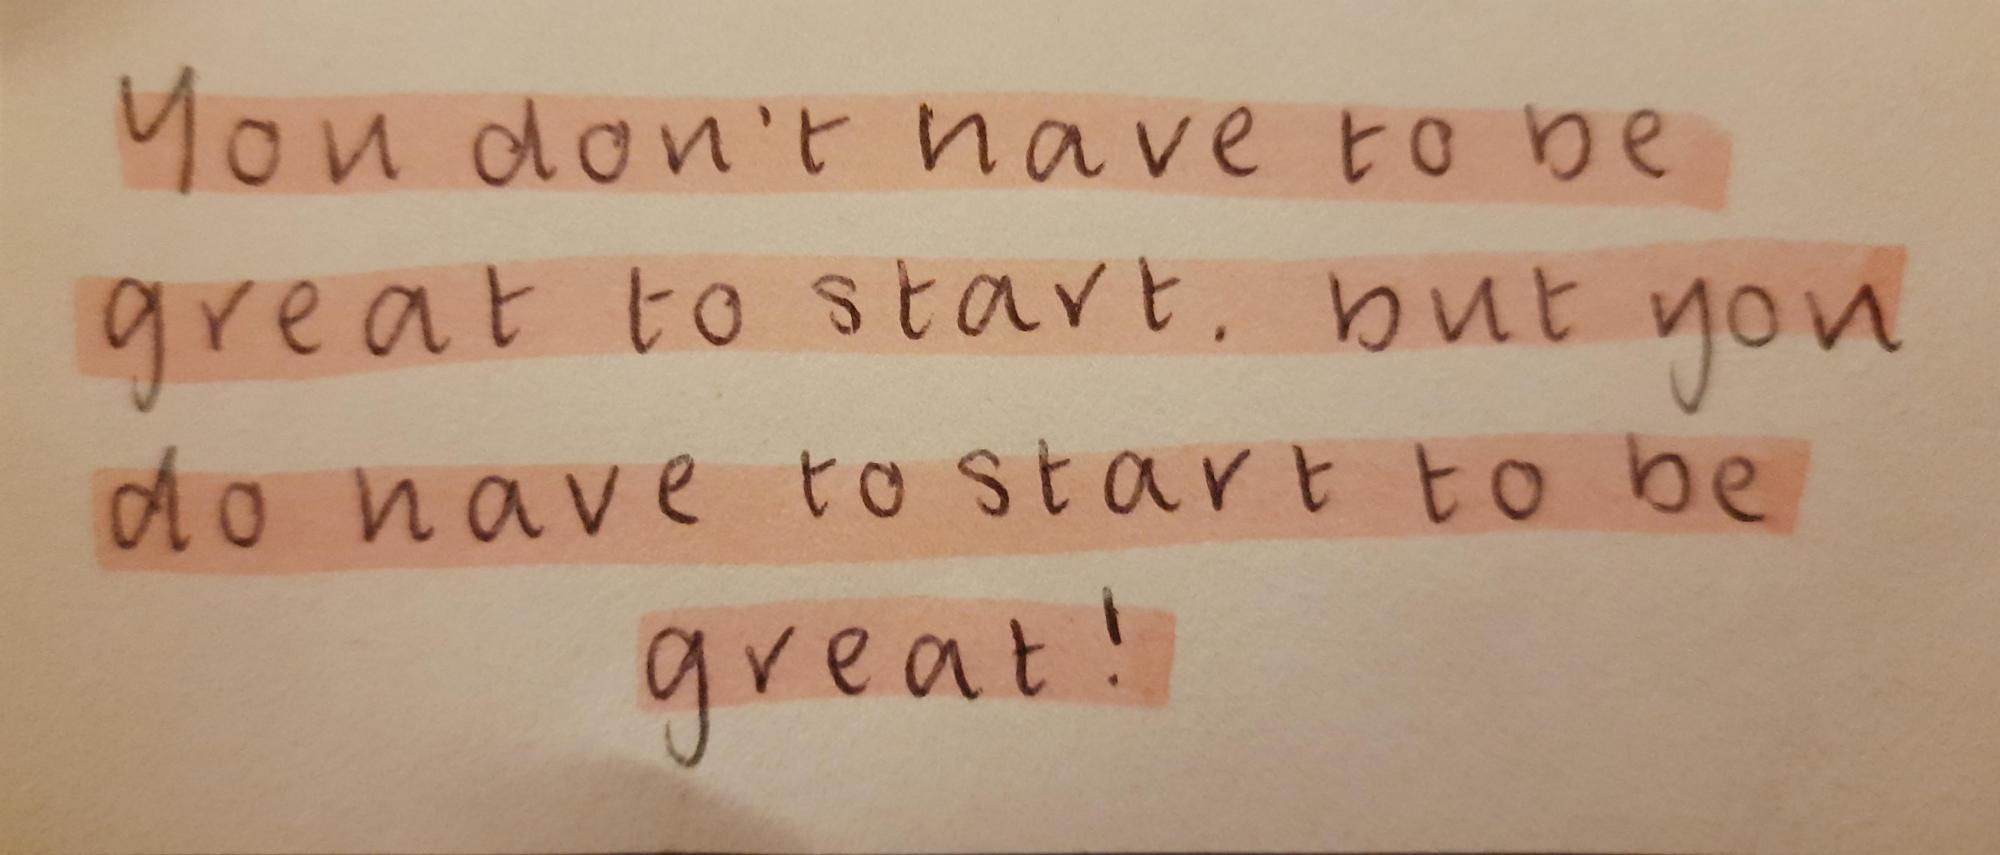 You don't have to be
great to start. but you
do have to start to be
great!